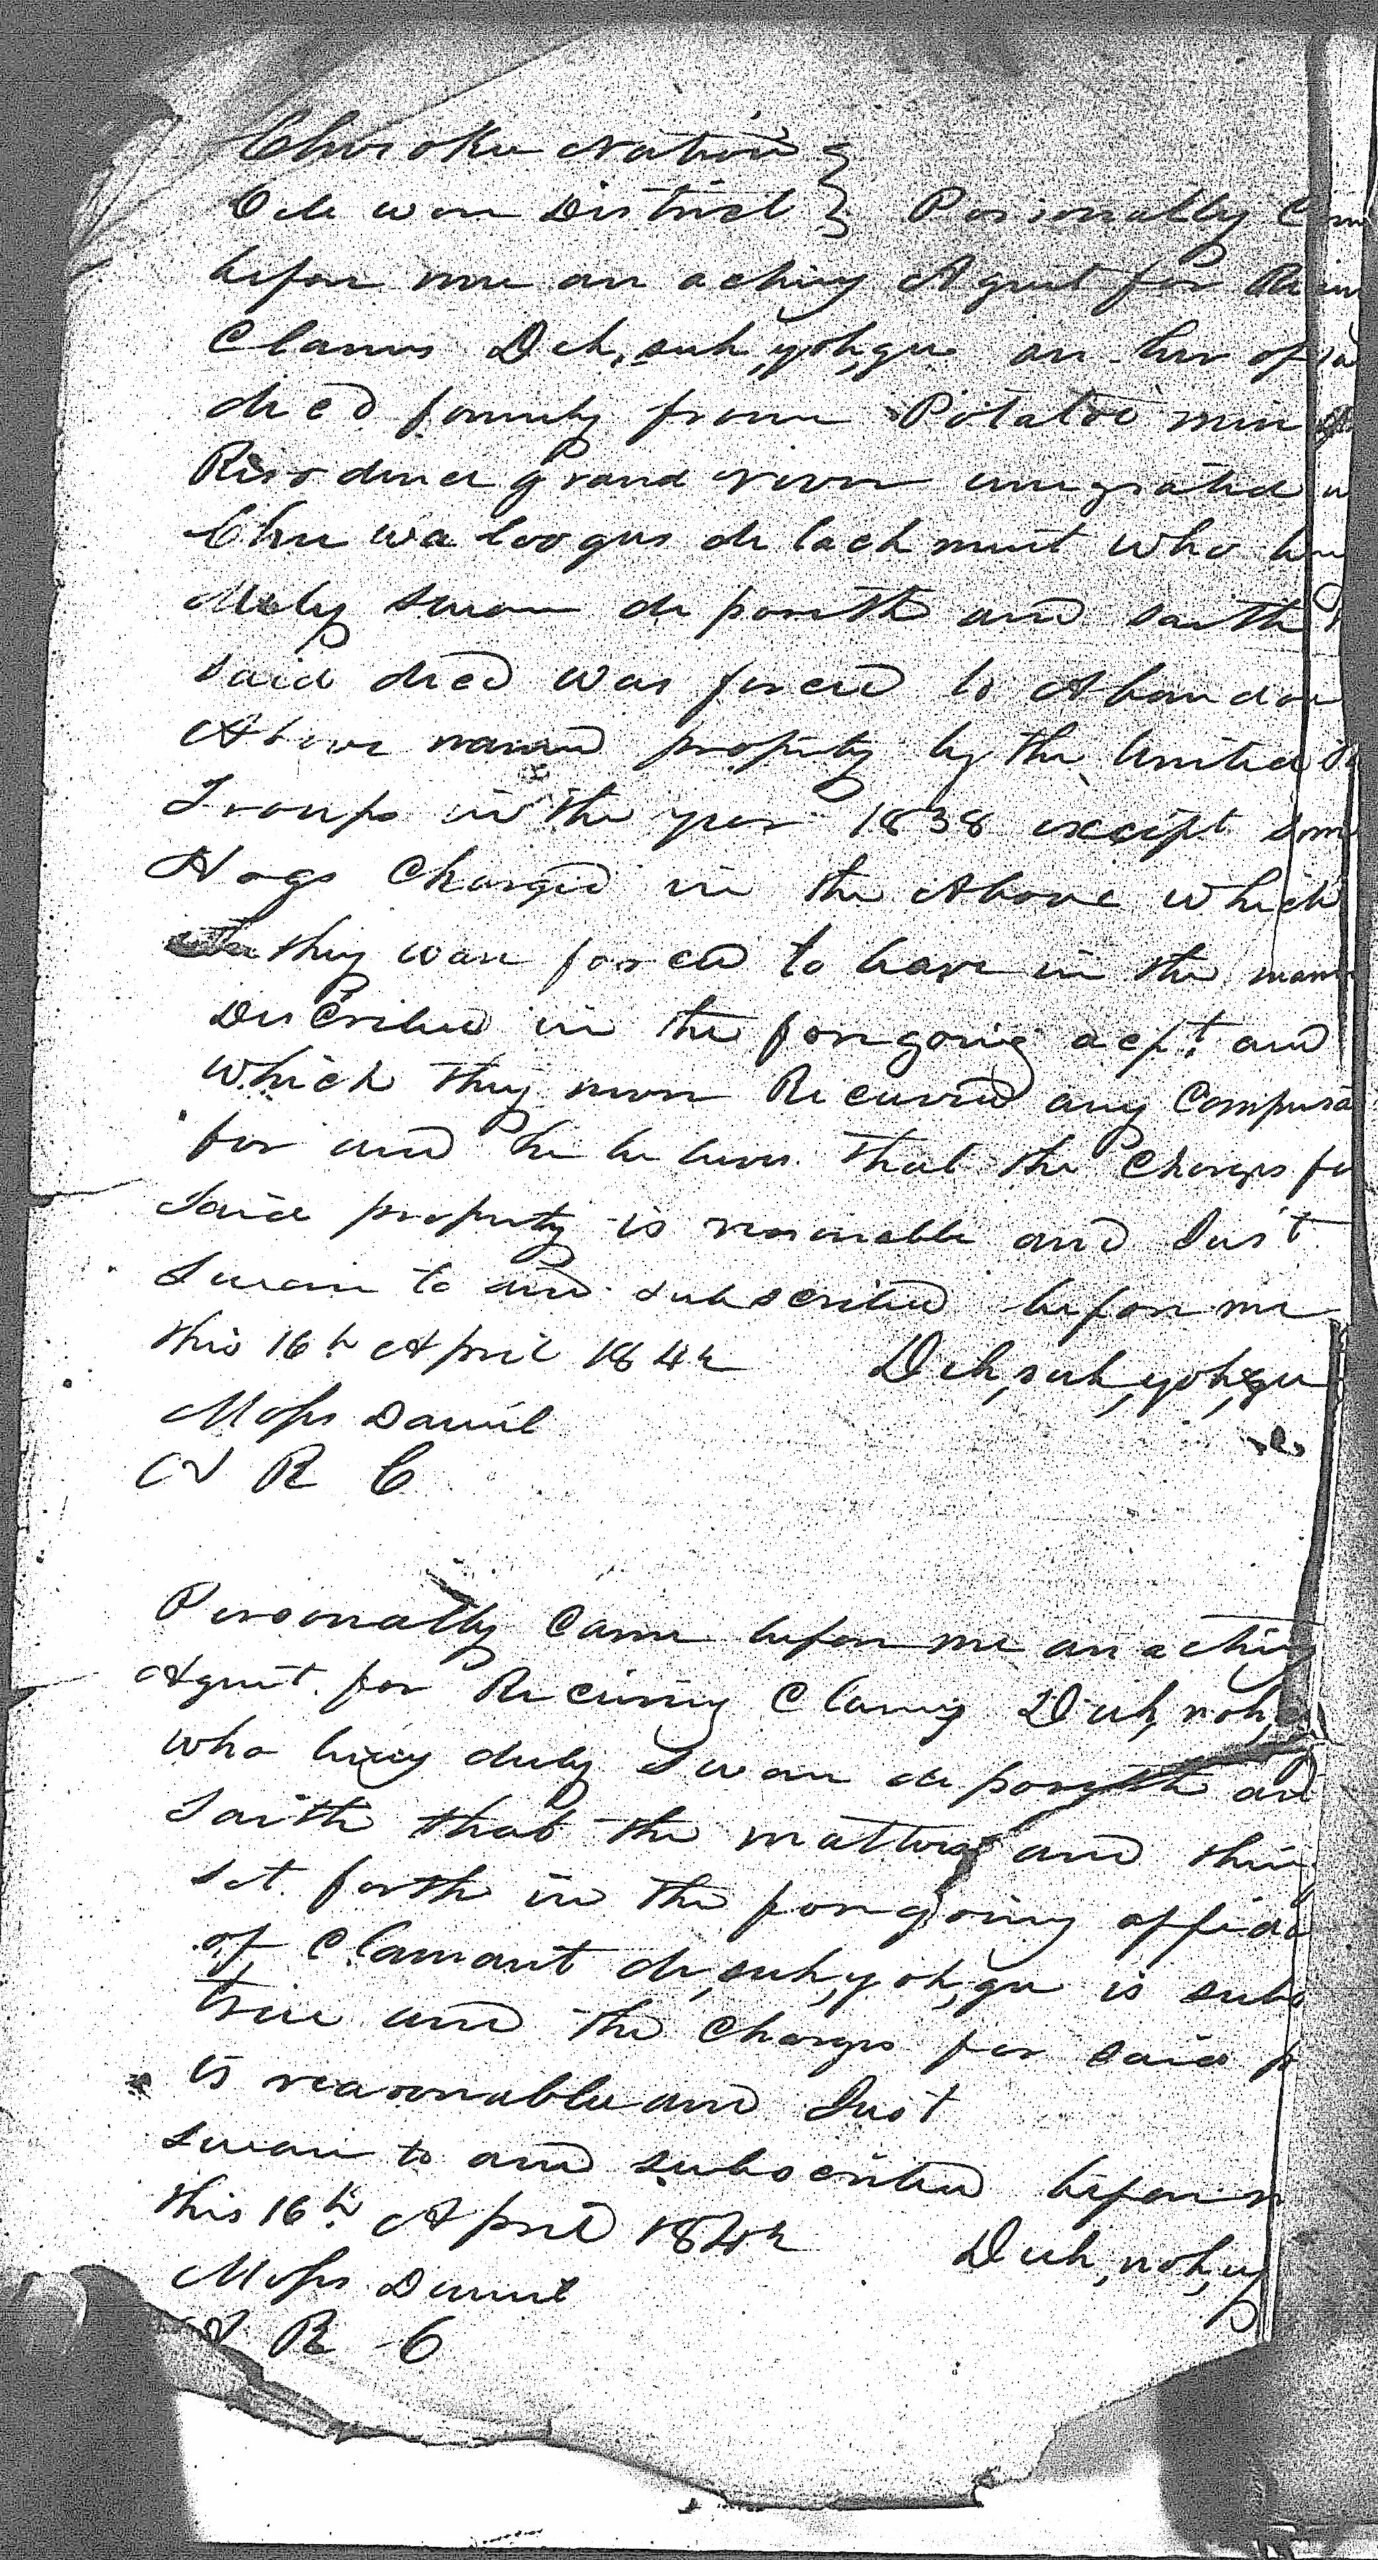 Cheroke Nation }
Dela ware District } Personally Cam
before me an acting Agent for Re
Clames Deh,suh,yoh,gee an heir of sa
decd formerly from Potatoe mine
Residence grand river emigrated
Chu wa loogus detachment who
duly sworn deposeth and saith
said decd was forced to Abandon
Above named property by the United
Troops in the year 1838 except som
Hogs Charged in the Above which
they ware forced to leave in the mann
Described in the foregoing acpt. and
which they never Received any Compensa
for and he believes that the Charges fo
said property is reasonable and Just
Sworn to and subscribed before me
this 16th April 1842 Deh,suh,yoh,gee
Moses Daniel
A R C
Personally Came before me an acting
Agent for Receiving Clames Duh,noh,
who being duly Sworn deposeth and
Saith that the matters and thing
set forth in the foregoing affida
of Clamant de,suh,yoh,gee is subs
true and the Charges for said p
is reasonable and Just
sworn to and subscribed before m
this 16th April 1842 Duh,noh,
Moses Daniel
A R C